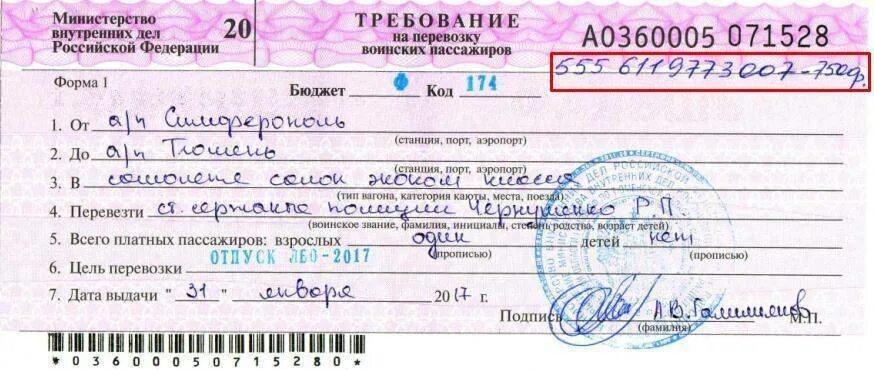 Министерство внутренних дел Российской Федерации
20
ТРЕБОВАНИЕ
на перевозку
воинских пассажиров
А0360005 071528
555 6119773007-750ф.
Форма 1
Бюджет Ф Код 174
1. От а/п Симферополь
(станция, порт, аэропорт)
2. До а/п Тюмень
(станция, порт, аэропорт)
3. В самолете салон эконом класса
(тип вагона, категория каюты, места, поезда)
4. Перевезти ст. сержанта полиции Р.П.
(воинское звание, фамилия, инициалы, степень родства, возраст детей)
5. Всего платных пассажиров: взрослых один детей нет
(прописью) (прописью)
6. Цель перевозки ОТПУСК ЛБО-2017
7. Дата выдачи "31" января 2017 г.
Подпись А.В.
(фамилия)
М.П.
*0360005071528 0*